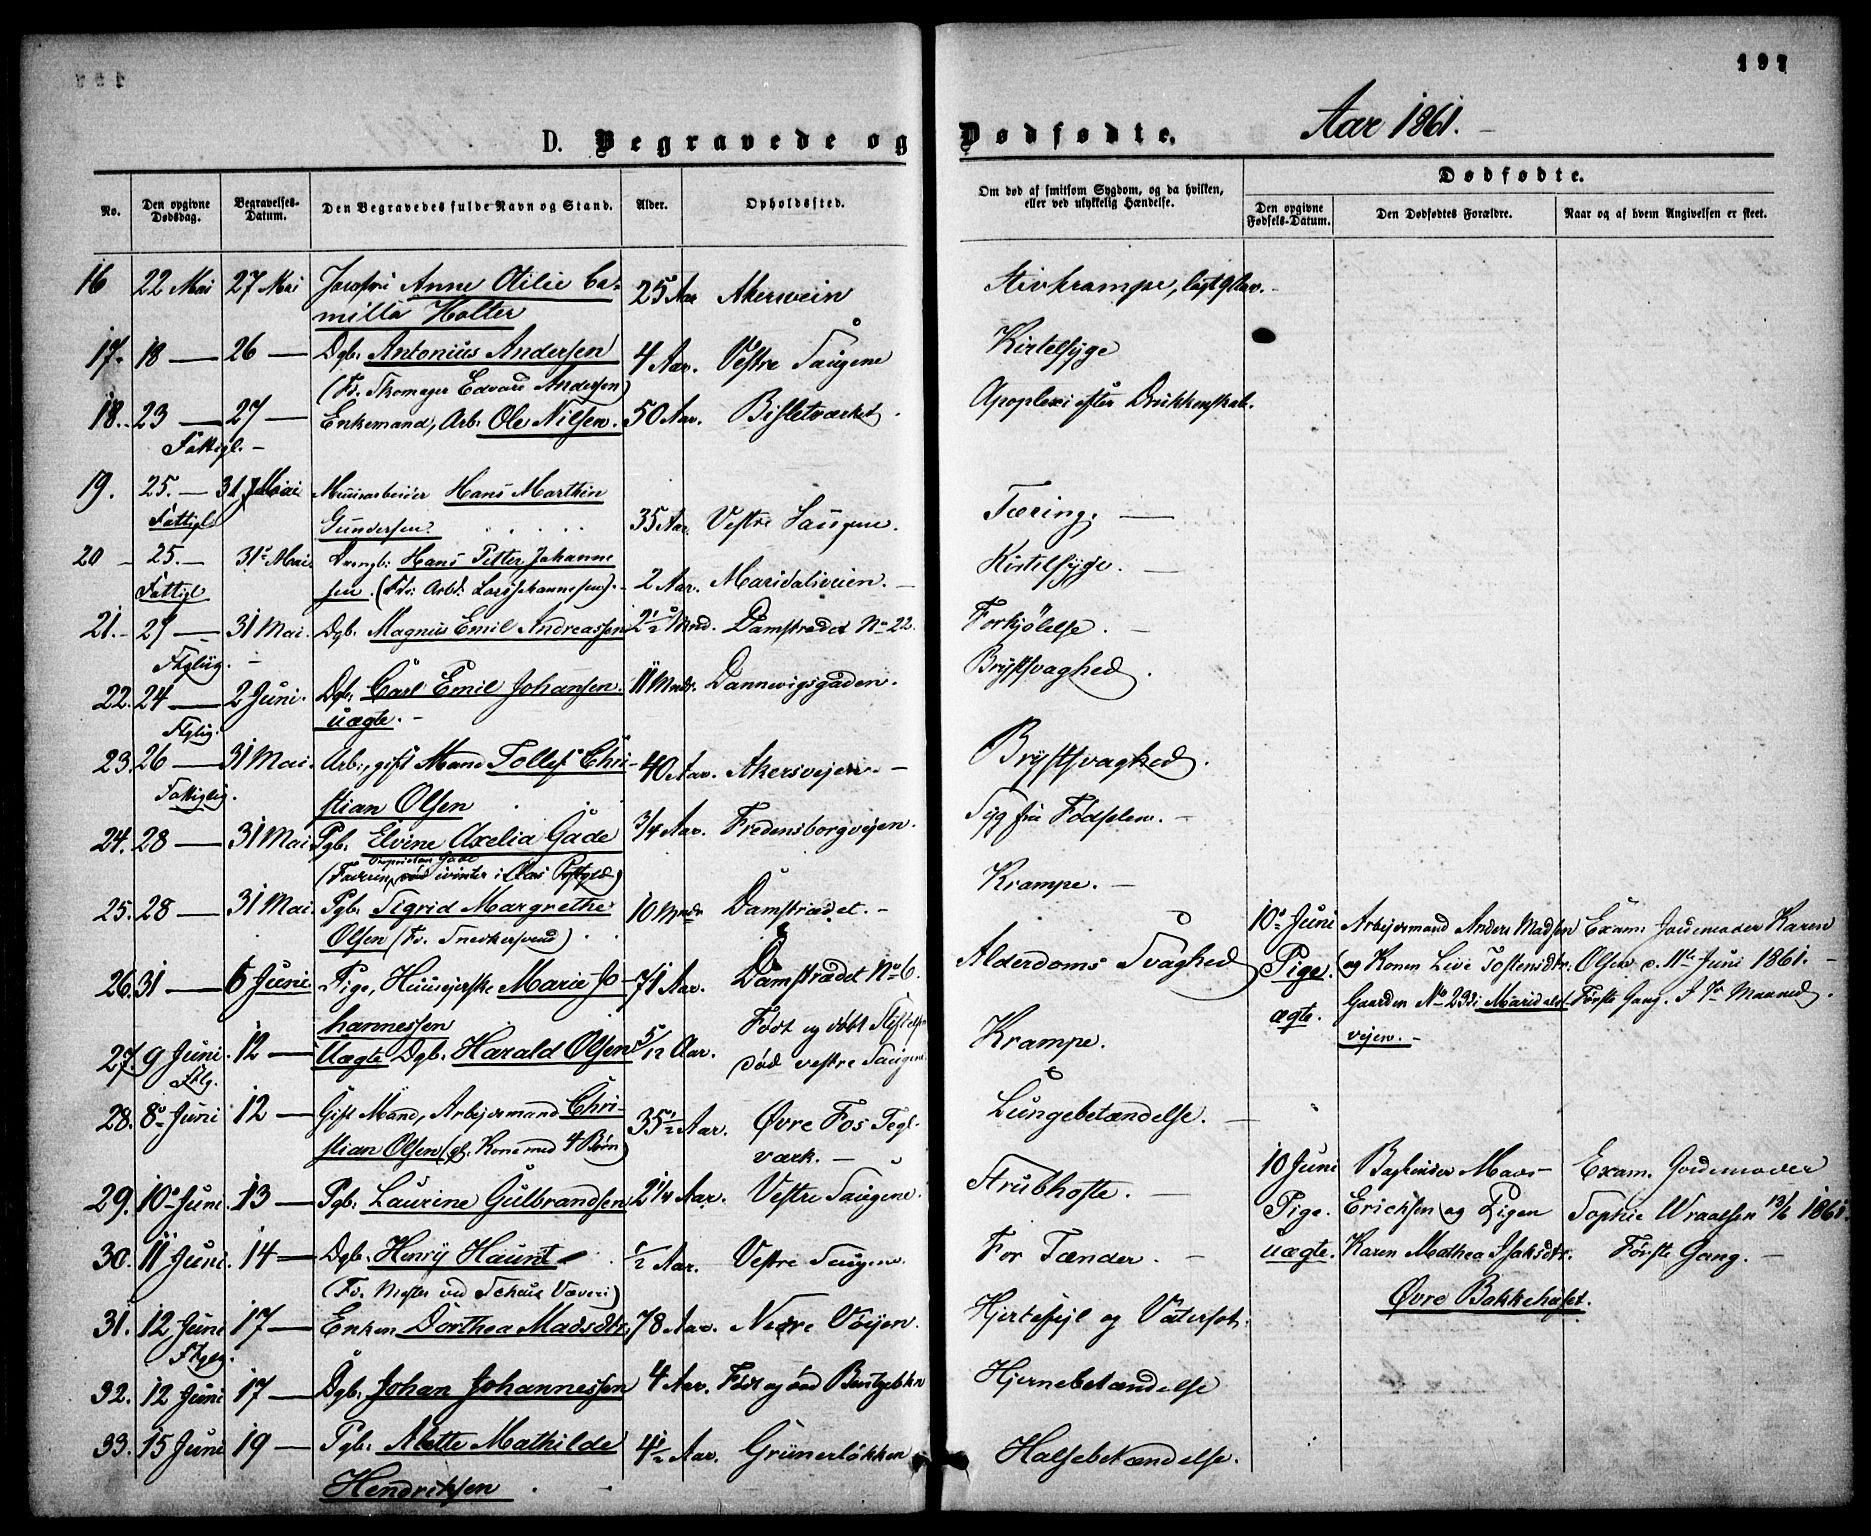 197
D. Begravede og Dødfødte. Aar 1861.
Dødfødte.
No. Den opgivne Dødsdag. Begravelses-Datum. Den Begravedes fulde Navn og Stand. Alder. Opholdssted. Om død af smitsom Sygdom, og da hvilken, eller ved ulykkelig Hændelse. Den opgivne Fødsels-Datum. Den Dødfødtes Forældre. Naar og af hvem Angivelsen er skeet.
16 22 Mai 27 Mai Anne Otilie Ca- 25 Aar Akersvein Stivkrampe,
milla Holter
17. 18 — 26 — Dgb. Antonius Andersen 4 Aar. Vestre Saugene Kirtelsyge
(Fr. Edvard Andersen)
18. 23 — 27 — Enkemand, Arb. Ole Nilsen. 50 Aar. Bisletværket. Apoplexi efter Drukkenskab.
Fattigl. —
19. 25. — 31 Mai Muurarbeider Hans Marthin
Fattigl Gundersen. 35 Aar. Vestre Saugene. Tæring. —
20 — 25. — 31te Mai Drengb: Hans Petter Johanne
Fattigl sen. (F. Arb. Lars Johannesen). 2 Aar. Maridalsveien. — Kirtelsyge. —
21. 27 — 31 Mai. Dgb. Magnus Emil Andreassen 2½ Mnd. Damstrædet No 22. Forkjølelse. —
Ftglig. —
22. 24 — 2 Juni. Dgb. Carl Emil Johansen. 11 Mndr. Dannevigsgaden. Brystsvaghed.
Ftglig. uægte. —
23. 26 — 31 Mai. Arb., gift Mand Tollef Chri- 40 Aar. Akersvejen. — Brystsvaghed.
Fattiglig. stian Olsen
24. 28 — 31 Mai Pgb. Elvine Axelia Gade 3/4 Aar. Fredensborgvejen. Syg fra Fødselen. —
Proprietær Gade
25. 28 — 31 Mai. Pgb. Sigrid Margrethe 10 Mndr Damstrædet. — Krampe. —
Olsen (Fr. Snedkersvend)
26. 31 — 6 Juni. Pige, Huusejerske Marie Jo- 71 Aar. Damstrædet No 6. Alderdoms Svaghed
hannessen
27. 9 Juni. 12 — Uægte Dgb. Harald Olsen 5/12 Aar. Født og døbt Stiftelsen Krampe.
Ftlg. død vestre Saugene
28. 8de Juni 12 — Gift Mand, Arbejdsmand Chri- 35½ Aar. Øvre Fos Tegl- Lungebetændelse. —
stian Olsen (gl. Kone med 4 Børn) værk. —
29. 10de Juni. 13 — Pgb. Laurine Gulbrandsen 2 1/4 Aar. Vestre Saugene. Strubhoste. —
30. 11 Juni. 14 — Dgb. Henry Haunt ½ Aar. Vestre Saugene. For Tænder. —
(Fr. Mester ved Schous Væveri)
31. 12 Juni 17 — Enken Dorthea Madsdtr. 78 Aar. Nedre Vøijen. Hjertefejl og Vatersot.
Ftglig.
32. 12 Juni 17 — Dgb. Johan Johannessen 4 Aar. Født og død Hjernebetændelse
33. 15 Juni 19 — Pgb. Alette Mathilde 4½ Aar. Grünerløkken Halsebetændelse.
Hendriksen
10de Juni Arbejdsmand Anders Madsen Exam. Jordemoder Karen
Pige. og Konen Live Tostensdtr. Olsen d. 11te Juni 1861. —
ægte. Gaarden No 293 i Maridals- Første Gang. I 7de Maaned.
vejen. —
10 Juni Bagbinder Mads Exam. Jordemoder
Pige. Ericksen og Pigen Sophie Wraalsen 13/6 1861.
uægte. Karen Mathea Isaksdtr. Første Gang. —
Øvre Bakkehuset.